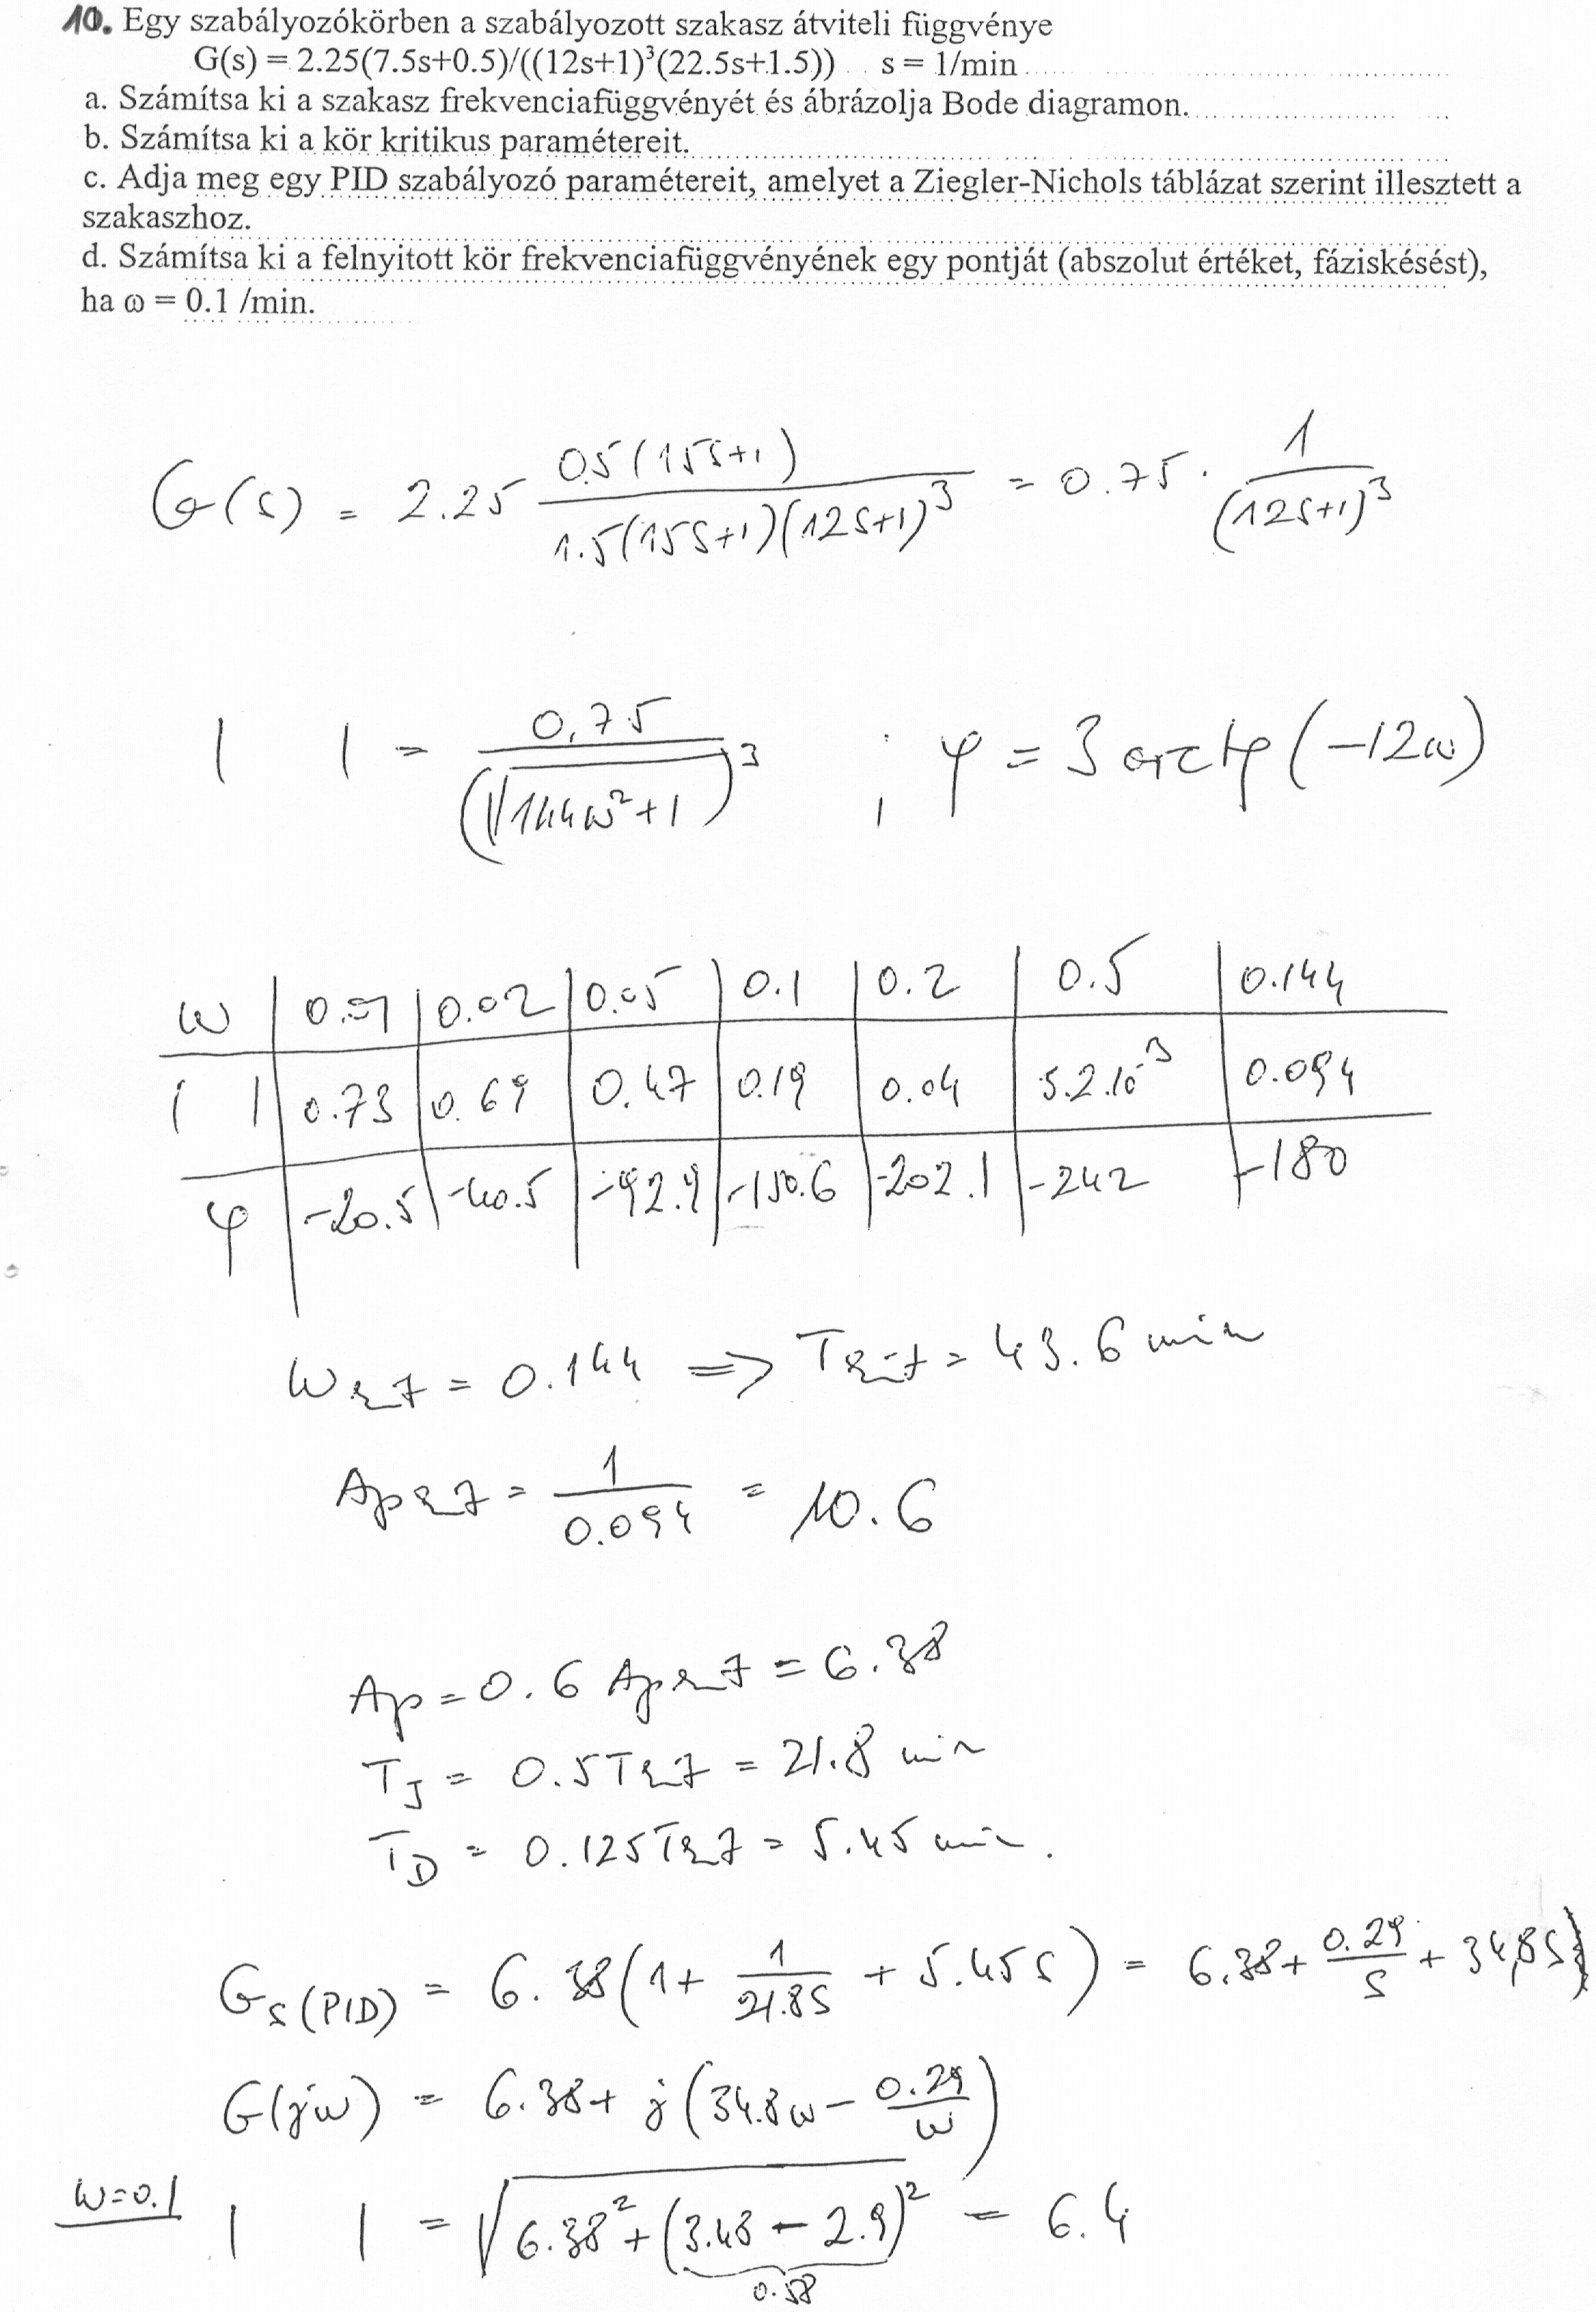 10. Egy szabályozókörben a szabályozott szakasz átviteli függvénye
G(s) = 2.25(7.5s+0.5)/((12s+1)³(22.5s+1.5)) s = 1/min
a. Számítsa ki a szakasz frekvenciafüggvényét és ábrázolja Bode diagramon.
b. Számítsa ki a kör kritikus paramétereit.
c. Adja meg egy PID szabályozó paramétereit, amelyet a Ziegler-Nichols táblázat szerint illesztett a
szakaszhoz.
d. Számítsa ki a felnyitott kör frekvenciafüggvényének egy pontját (abszolut értéket, fáziskésést),
ha ω = 0.1 /min.
G(s) = 2.25 0.5(15s+1) / 1.5(15s+1)(12s+1)³ = 0.75 · 1 / (12s+1)³
| | = 0,75 / (√144ω²+1)³ ; φ = 3 arctg (-12ω)
ω | 0.01 | 0.02 | 0.05 | 0.1 | 0.2 | 0.5 | 0.144
| | 0.73 | 0.69 | 0.47 | 0.19 | 0.04 | 3.2.10⁻³ | 0.094
φ | -20.5 | -40.5 | -92.9 | -150.6 | -202.1 | -242 | -180
ωkrit = 0.144 => Tkrit = 43.6 min
Apkrit = 1 / 0.094 = 10.6
Ap = 0.6 Apkrit = 6.38
TI = 0.5Tkrit = 21.8 min
TD = 0.125Tkrit = 5.45 min.
Gs(PID) = 6.38(1 + 1 / 21.8s + 5.45s) = 6.38 + 0.29 / s + 34,8s
G(jω) = 6.38 + j(34.8ω - 0.29 / ω)
ω=0.1 | | = √6.38² + (3.48 - 2.9)² = 6.4
0.58